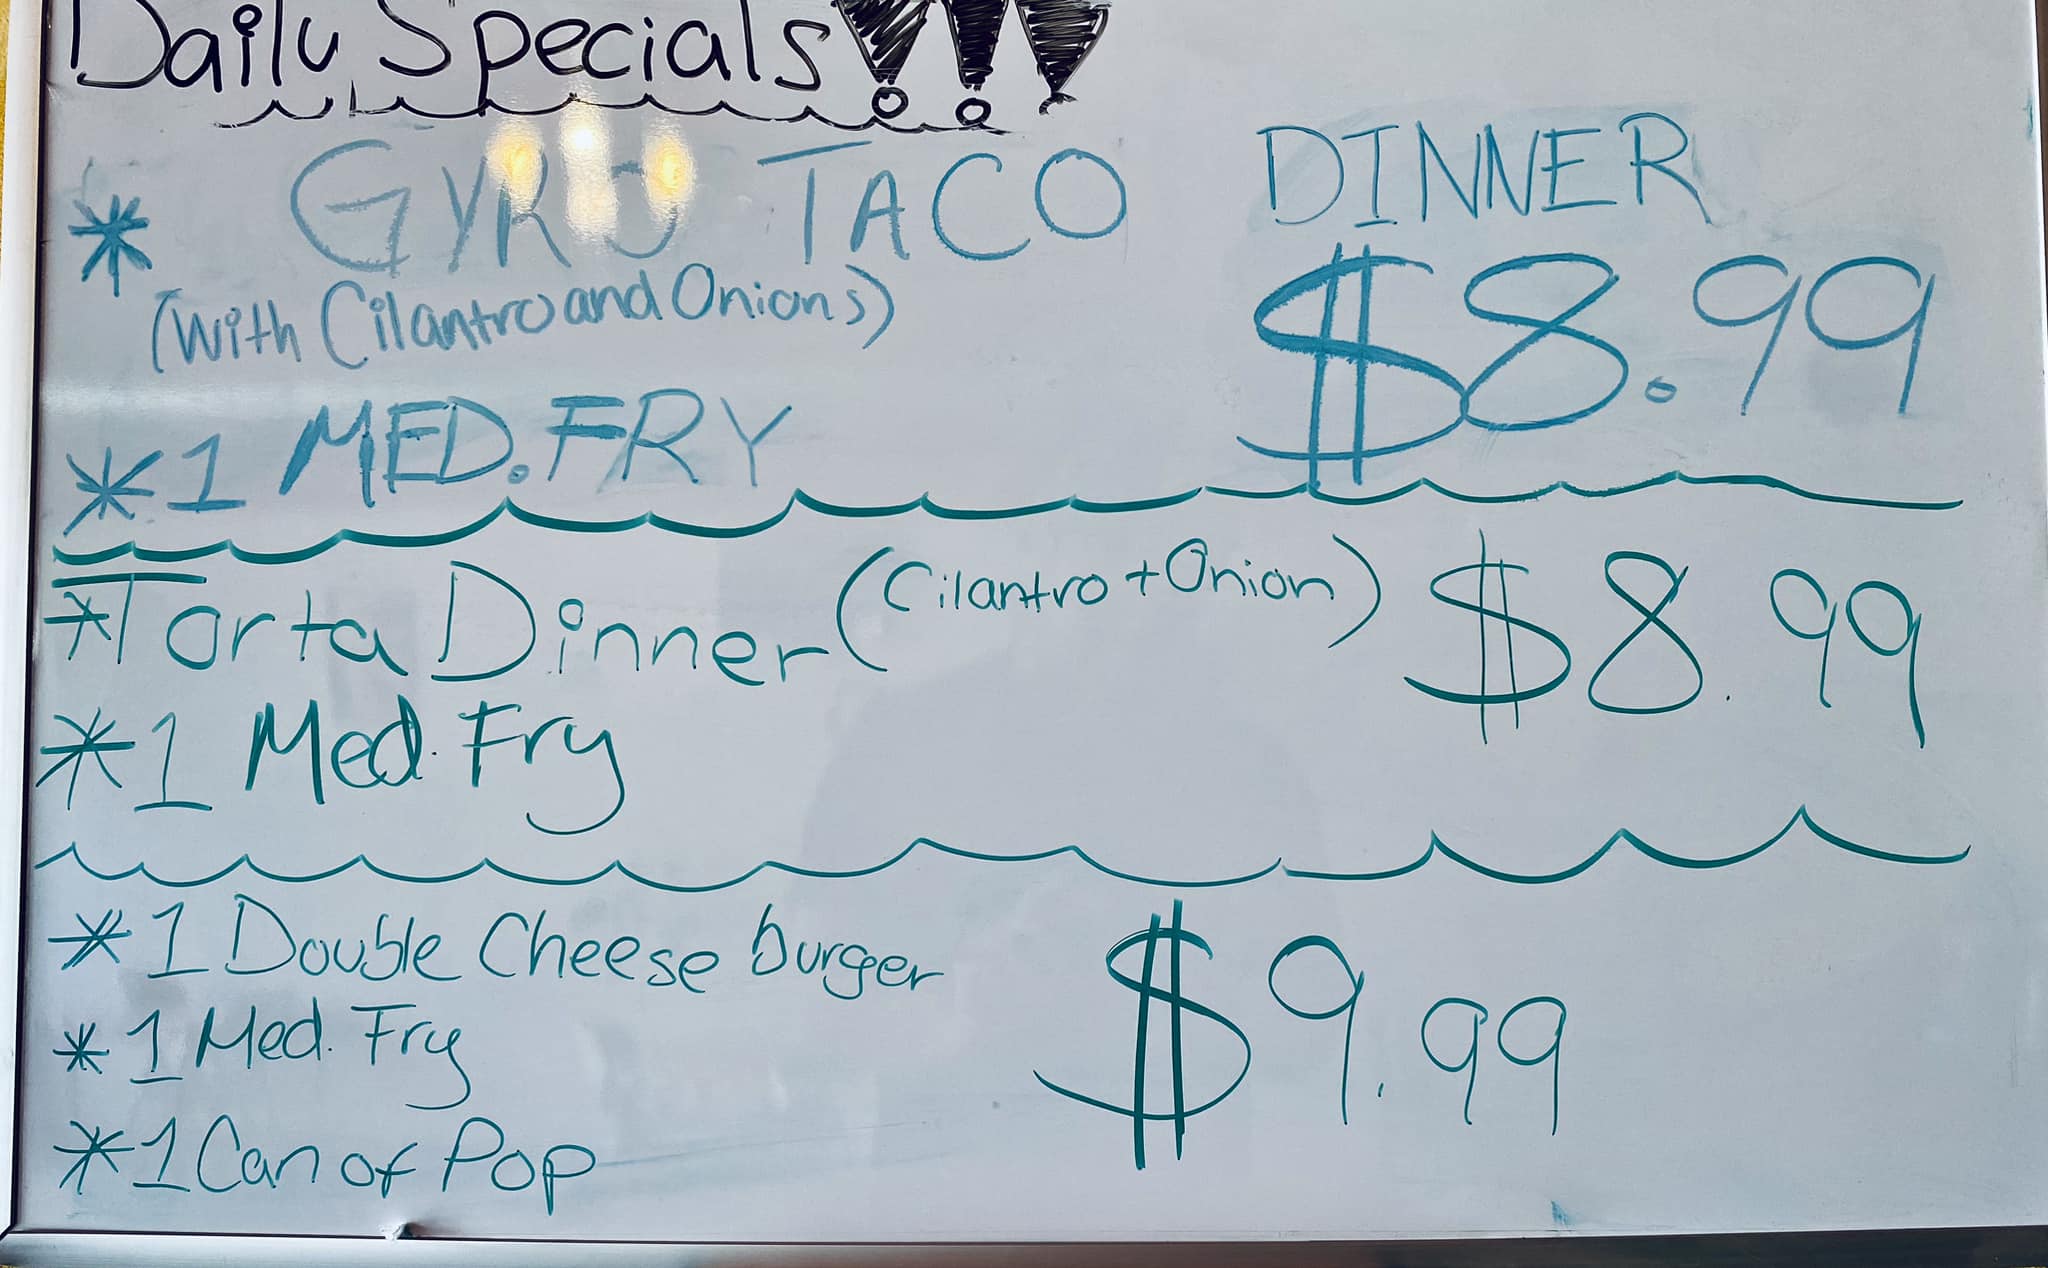 Daily Specials!!!
* GYRO TACO DINNER
(With Cilantro and Onions) $8.99
*1 MED. FRY
*Torta Dinner (Cilantro + Onion) $8.99
*1 Med. Fry
*1 Double Cheese burger
*1 Med. Fry $9.99
*1 Can of Pop